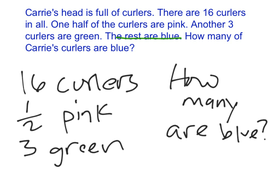 Carrie's head is full of curlers. There are 16 curlers
in all. One half of the curlers are pink. Another 3
curlers are green. The rest are blue. How many of
Carrie's curlers are blue?
16 curlers
1/2 pink
3 green
How
many
are blue?